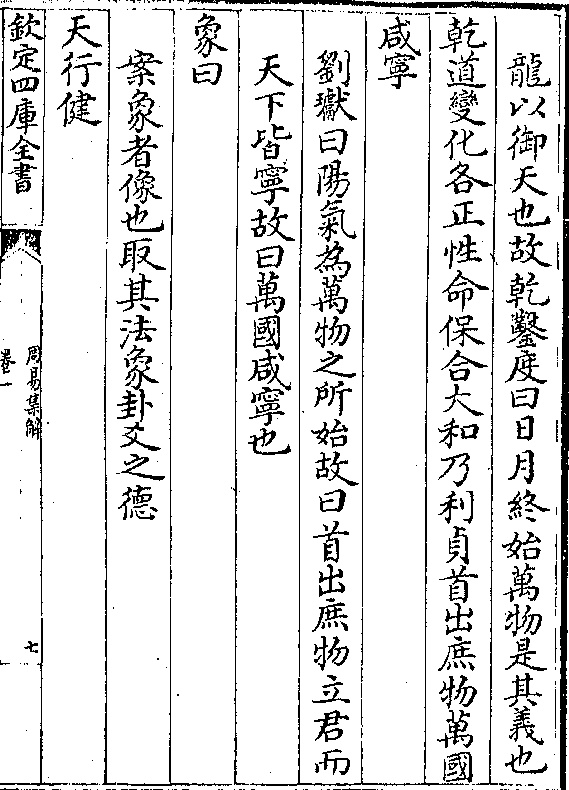 龍以御天也故乾鑿度曰日月終始萬物是其義也
乾道變化各正性命保合大和乃利貞首出庶物萬國
咸寧
劉瓛曰陽氣為萬物之所始故曰首出庶物立君而
天下皆寧故曰萬國咸寧也
象曰
案象者像也取其法象卦爻之德
天行健
欽定四庫全書
周易集解
卷一
七